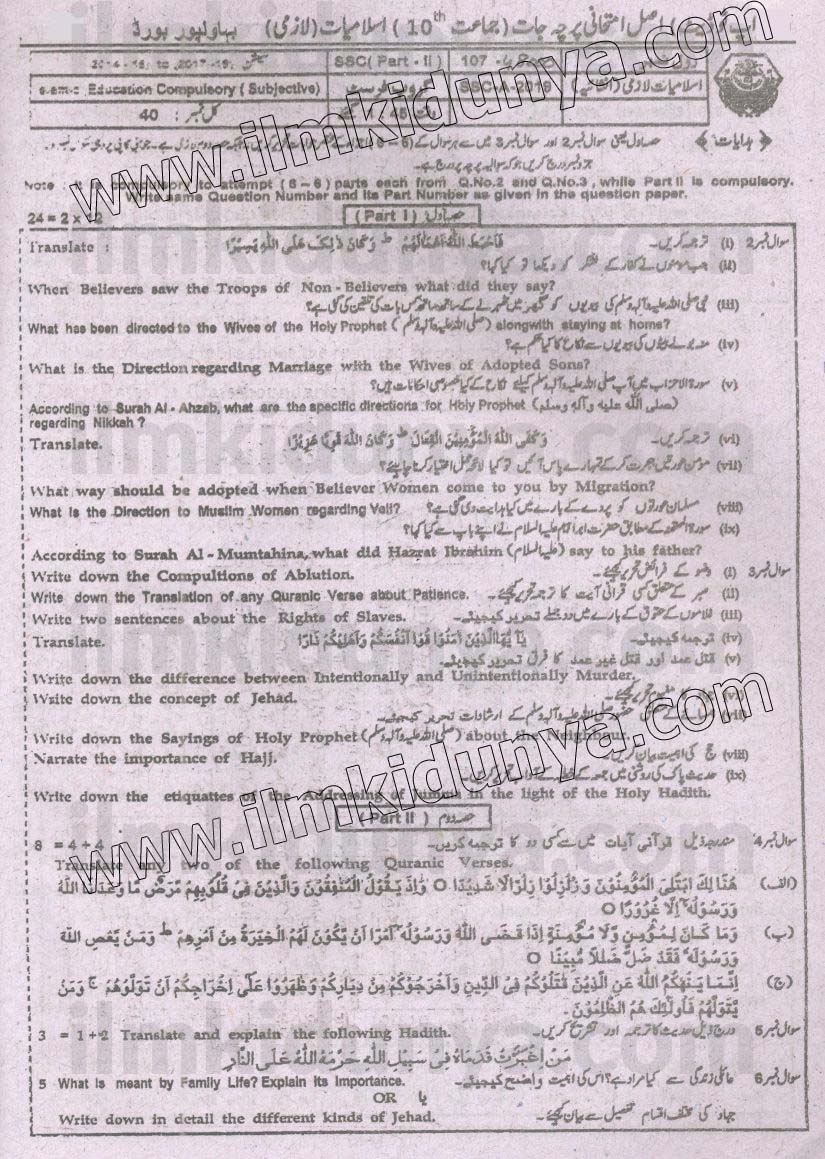 اصل امتحانی پرچہ جات (جماعت 10th) اسلامیات (لازمی) بہاولپور بورڈ
سیشن SSC( Part - II) 107
Education Compulsory ( Subjective) SSC-A-2019 اسلامیات لازمی
کل نمبر : 40 1 / 45
﴿ ہدایات ﴾ حصہ اول یعنی سوال نمبر 2 اور سوال نمبر 3 میں سے ہر سوال کے
Note : It is compulsory to attempt (6 – 6) parts each from Q.No.2 and Q.No.3, while Part II is compulsory.
Write same Question Number and its Part Number as given in the question paper.
24 = 2 x 12 (Part I) حصہ اول
سوال نمبر 2 (i) ترجمہ کریں۔ فَاَحْبَطَ اللّٰهُ اَعْمَالَهُمْ ط وَكَانَ ذٰلِكَ عَلَى اللّٰهِ يَسِيْرًا Translate :
(ii) جب مومنوں نے کفار کے لشکر کو دیکھا تو کیا کہا؟
When Believers saw the Troops of Non - Believers what did they say?
(iii) نبی صلی اللہ علیہ وآلہ وسلم کی بیویوں کو گھر میں ٹھہرنے کے ساتھ ساتھ کس بات کی تلقین کی گئی ہے؟
What has been directed to the Wives of the Holy Prophet (صلی اللہ علیہ وآلہ وسلم) alongwith staying at home?
(iv) منہ بولے بیٹوں کی بیویوں سے نکاح کا کیا حکم ہے؟
What is the Direction regarding Marriage with the Wives of Adopted Sons?
(v) سورۃ الاحزاب میں آپ صلی اللہ علیہ وآلہ وسلم کیلئے نکاح کے کیا خصوصی احکامات ہیں؟
According to Surah Al - Ahzab, what are the specific directions for Holy Prophet (صلى الله عليه وآله وسلم)
regarding Nikkah ?
(vi) ترجمہ کریں۔ وَكَفَى اللّٰهُ الْمُؤْمِنِيْنَ الْقِتَالَ ط وَكَانَ اللّٰهُ قَوِيًّا عَزِيْزًا Translate.
(vii) مؤمن عورتیں ہجرت کر کے تمہارے پاس آئیں تو کیا لائحہ عمل اختیار کرنا چاہیئے؟
What way should be adopted when Believer Women come to you by Migration?
(viii) مسلمان عورتوں کو پردے کے بارے میں کیا ہدایت دی گئی ہے؟ What is the Direction to Muslim Women regarding Veil?
(ix) سورۃ الممتحنہ کے مطابق حضرت ابراہیم علیہ السلام نے اپنے باپ سے کیا کہا؟
According to Surah Al - Mumtahina, what did Hazrat Ibrahim (علیہ السلام) say to his father?
سوال نمبر 3 (i) وضو کے فرائض تحریر کیجئے۔ Write down the Compultions of Ablution.
(ii) صبر کے متعلق کسی قرآنی آیت کا ترجمہ تحریر کیجئے۔ Write down the Translation of any Quranic Verse about Patience.
(iii) غلاموں کے حقوق کے بارے میں دو جملے تحریر کیجیئے۔ Write two sentences about the Rights of Slaves.
(iv) ترجمہ کیجیئے۔ يٰاَيُّهَا الَّذِيْنَ اٰمَنُوْا قُوْا اَنْفُسَكُمْ وَاَهْلِيْكُمْ نَارًا Translate.
(v) قتل عمد اور قتل غیر عمد کا فرق تحریر کیجیئے۔
Write down the difference between Intentionally and Unintentionally Murder.
(vi) مفہوم تحریر کیجئے۔ Write down the concept of Jehad.
(vii) حضور صلی اللہ علیہ وآلہ وسلم کے ارشادات تحریر کیجیئے۔
Write down the Sayings of Holy Prophet (صلی اللہ علیہ وآلہ وسلم) about the Neighbour.
(viii) حج کی اہمیت بیان کریں۔ Narrate the importance of Hajj.
(ix) حدیث پاک کی روشنی میں جمعہ کے خطبہ کے آداب تحریر کریں۔
Write down the etiquattes of the Addressing of Jumma in the light of the Holy Hadith.
(Part II) حصہ دوم
سوال نمبر 4 مندرجہ ذیل قرآنی آیات میں سے کسی دو کا ترجمہ کریں۔ 8 = 4 + 4
Translate any two of the following Quranic Verses.
(الف) هُنَا لِكَ ابْتُلِىَ الْمُؤْمِنُوْنَ وَ زُلْزِلُوْا زِلْزَالًا شَدِيْدًا O وَاِذْ يَقُوْلُ الْمُنٰفِقُوْنَ وَالَّذِيْنَ فِىْ قُلُوْبِهِمْ مَّرَضٌ مَّا وَعَدَنَا اللّٰهُ
وَرَسُوْلُهٗ اِلَّا غُرُوْرًا O
(ب) وَمَا كَانَ لِمُؤْمِنٍ وَّلَا مُؤْمِنَةٍ اِذَا قَضَى اللّٰهُ وَرَسُوْلُهٗ اَمْرًا اَنْ يَّكُوْنَ لَهُمُ الْخِيَرَةُ مِنْ اَمْرِهِمْ ط وَمَنْ يَّعْصِ اللّٰهَ
وَرَسُوْلَهٗ فَقَدْ ضَلَّ ضَلٰلًا مُّبِيْنًا O
(ج) اِنَّمَا يَنْهٰكُمُ اللّٰهُ عَنِ الَّذِيْنَ قٰتَلُوْكُمْ فِى الدِّيْنِ وَاَخْرَجُوْكُمْ مِنْ دِيَارِكُمْ وَظٰهَرُوْا عَلٰى اِخْرَاجِكُمْ اَنْ تَوَلَّوْهُمْ ج وَمَنْ
يَّتَوَلَّهُمْ فَاُولٰٓئِكَ هُمُ الظّٰلِمُوْنَ۔
سوال نمبر 5 درج ذیل حدیث کا ترجمہ اور تشریح کریں۔ 3 = 1+2 Translate and explain the following Hadith.
مَنِ اغْبَرَّتْ قَدَمَاهُ فِىْ سَبِيْلِ اللّٰهِ حَرَّمَهُ اللّٰهُ عَلَى النَّارِ
سوال نمبر 6 عائلی زندگی سے کیا مراد ہے؟ اس کی اہمیت واضح کیجیئے۔ 5 What is meant by Family Life? Explain its Importance.
OR یا
جہاد کی مختلف اقسام تفصیل سے بیان کیجئے۔ Write down in detail the different kinds of Jehad.
www.ilmkidunya.com
www.ilmkidunya.com